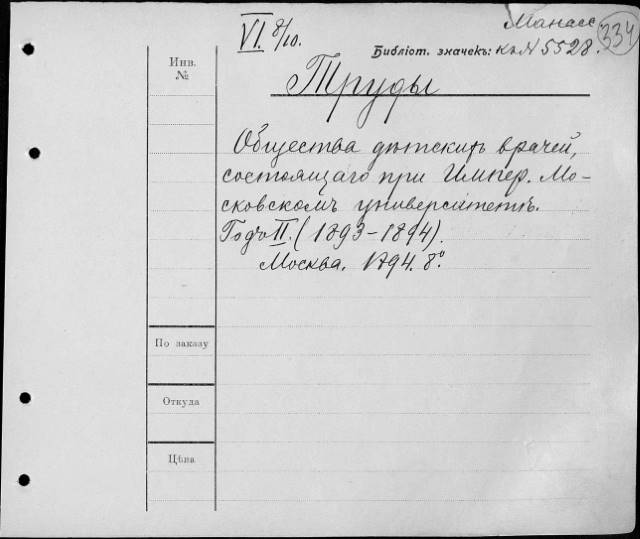 Манасс
334
VI. 8/10.
Библіот. значекъ: къ N 5528.
Инв.
№
Труды
Общества дѣтскихъ врачей,
состоящаго при Импер. Мо-
сковскомъ университетѣ.
Годъ II. (1893-1894).
Москва. 1894. 8°.
По заказу
Откуда
Цѣна